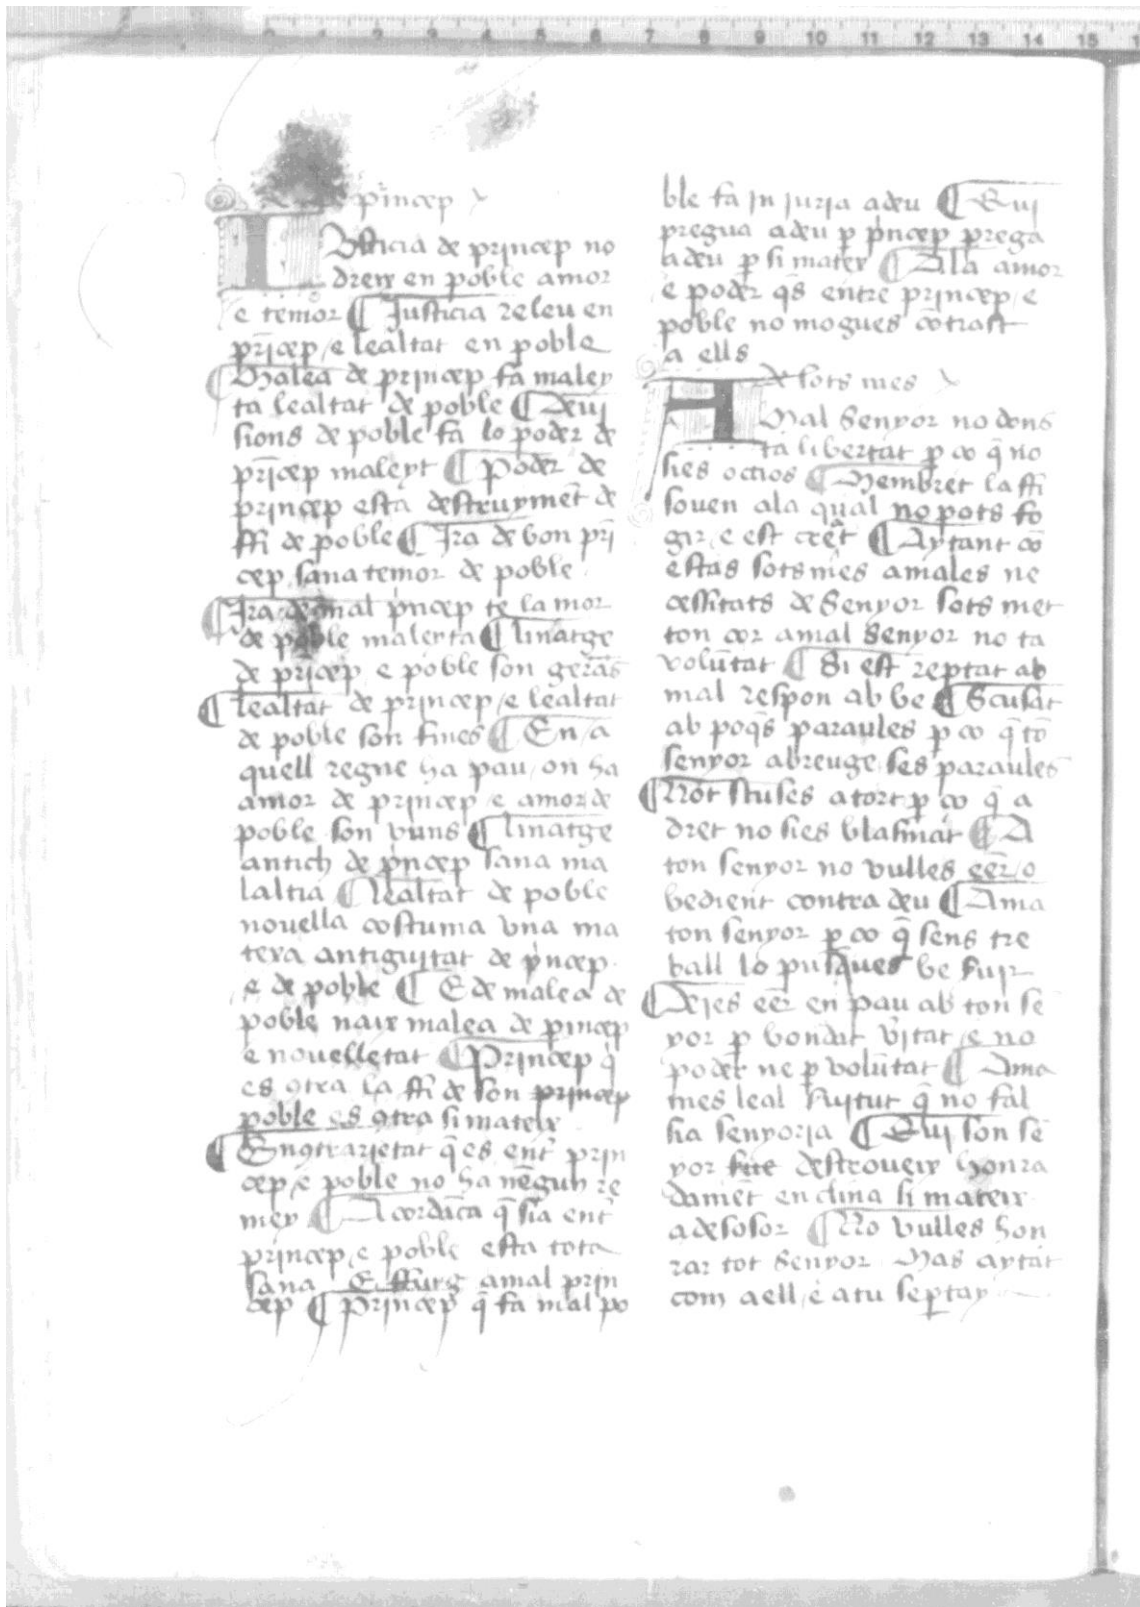 De princep
Justicia de princep no
dreix en poble amor
e temor ¶ Justicia releu en
prīcep / e lealtat en poble
¶ Malea de princep fa maley
ta lealtat de poble ¶ Deui
sions de poble fa lo poder de
prīcep maleyt ¶ Poder de
princep esta destruymēt de
ffi de poble ¶ Ira de bon prī
cep sana temor de poble
¶ Ira de mal pncep te lamor
de poble maleyta ¶ linatge
de pricep / e poble son gerās
¶ lealtat de princep / e lealtat
de poble son fines ¶ En a
quell regne ha pau / on ha
amor de princep / e amor de
poble son vuns ¶ linatge
antich de pncep sana ma
laltia ¶ lealtat de poble
nouella costuma vna ma
texa antiguitat de pncep
e de poble ¶ E de malea de
poble naix malea de pincep
e nouelletat ¶ Princep q̄
es ꝯtra la ffi de son princep
poble es ꝯtra si mateix
¶ En ꝯtrarietat q̄ es ent̄ prin
cep / e poble no ha nēgun re
mey ¶ Acordāca q̄ sia ent̄
princep / e poble esta tota
sana E ffurg amal prin
cep ¶ Princep q̄ fa mal po
ble fa in iuria adeu ¶ Qui
pregua adeu ꝑ pncep prega
adeu ꝑ si mateix ¶ Ala amor
e poder q̄s entre princep / e
poble no mogues cōtrast
a ells
de sots mes
A Mal Senyor no dons
ta libertat ꝑ co q̄ no
sies ocios ¶ Membret la ffi
souen ala qual no pots fo
gir / e est creāt ¶ Aytant cō
estas sotsmes amales ne
cessitats de Senyor sots met
ton cor amal Senyor no ta
volūtat ¶ Si est reptat ab
mal respon ab be ¶ Scusāt
ab poq̄s paraules ꝑ co q̄ tō
senyor abreuge ses paraules
¶ Not scuses atort ꝑ co q̄ a
dret no sies blasmat ¶ A
ton senyor no vulles eēr / o
bedient contra deu ¶ Ama
ton senyor ꝑ co q̄ sens tre
ball lo pusques be suir
¶ Deies eēr en pau ab ton sē
yor ꝑ bondat v̄itat / e no
poder ne ꝑ volūtat ¶ Ama
mes leal suitut q̄ no fal
sia senyoria ¶ Qui son sē
yor destroueix honra
damēt enclina si mateix
adesosor ¶ No vulles hon
rar tot Senyor Mas aytāt
com aell / e atu se ꝑtay